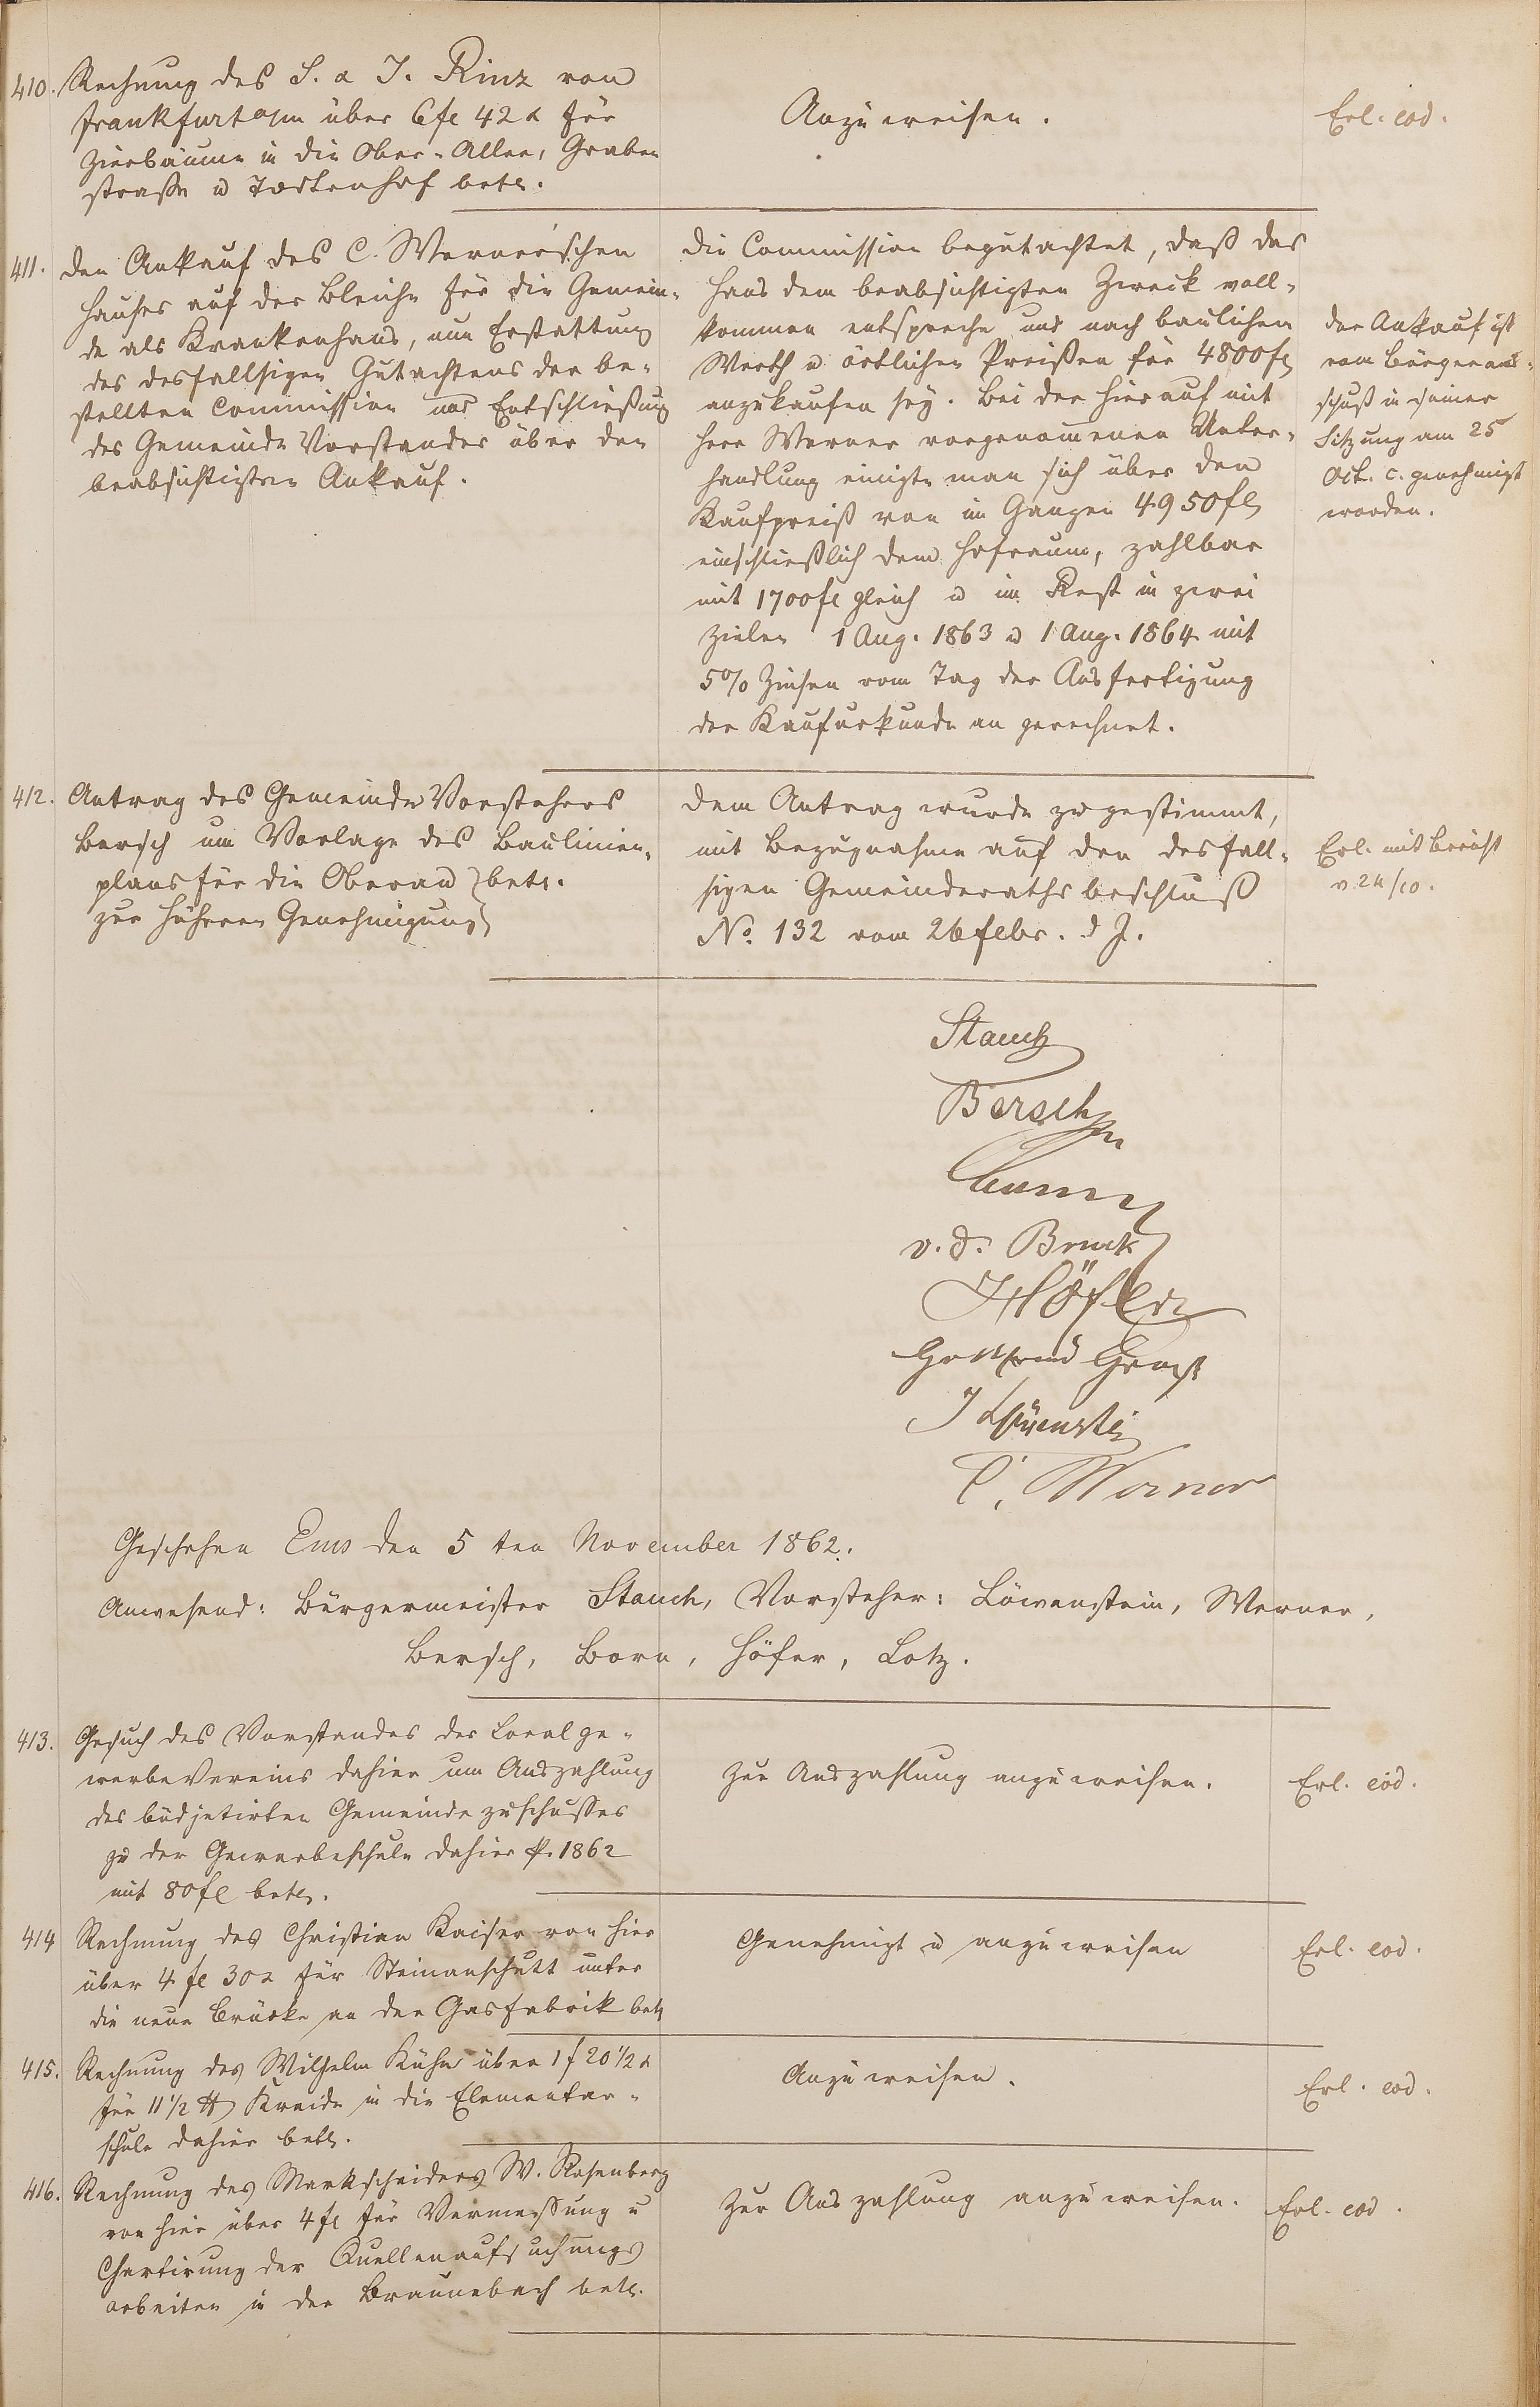 410. Rechnung des S. & J. Rinz von
Frankfurt a/m über 6 fl 42 x für
Zierbäume in die Ober-Allee, Graben
straße u
betr.
Anzuweisen.
Erl. eod.
411. Den Ankauf des C. Werner'schen
Hauses auf der Bleiche für die Gemein-
de als Krankenhaus, nun Erstattung
des desfallsigen Gutachtens der be-
stellten Commission und Entschließung
des Gemeinde Vorstandes über den
beabsichtigten Ankauf.
Die Commission begutachtet, daß das
Haus dem beabsichtigten Zweck voll-
kommen entspreche und nach baulichen
Werth u. örtlichen Preißen für 4800 fl
anzukaufen sey. Bei der hierauf mit
Herr Werner vorgenommenen Unter-
handlung einigte man sich über den
Kaufpreiß von im Ganzen 4950 fl
einschließlich dem Hofraum, zahlbar
mit 1700 fl gleich u im Rest in zwei
Zielen 1 Aug. 1863 u 1 Aug. 1864 mit
5% Zinsen vom Tag der Ausfertigung
der Kaufurkunde an gerechnet.
Der Ankauf ist
vom Bürgeraus-
schuß in seiner
Sitzung am 25
Oct. c. genehmigt
worden.
412. Antrag des Gemeinde Vorstehers
Bersch um Vorlage des Baulinien-
plans für die Oberau } betr.
zur höheren Genehmigung
Dem Antrag wurde zugestimmt,
mit Bezugnahme auf den desfall-
sigen Gemeinderathsbeschluß
No. 132 vom 26 Febr. d J.
Erl. mit Bericht
v. 24/10.
Stauch
Bersch
v. d. Bruck
J Höfer
J Löwenstein
C. Werner
Geschehen Ems den 5 ten November 1862.
Anwesend: Bürgermeister Stauch, Vorsteher: Löwenstein, Werner,
Bersch, Born, Höfer, Lotz.
413. Gesuch des Vorstandes des Localge-
werbevereins dahier um Auszahlung
des büdjetirten Gemeindezuschusses
zu der Gewerbeschule dahier p. 1862
mit 80 fl betr.
Zur Auszahlung anzuweisen.
Erl. eod.
414 Rechnung des Christian Kaiser von hier
über 4 fl 30 x für Steinanschutt unter
die neue Brücke an der Gasfabrik betr
Genehmigt u anzuweisen
Erl. eod.
415. Rechnung des Wilhelm Kühn über 1 f 20 1/2 x
für 11 1/2 ℔ Kreide in die Elementar-
schule dahier betr.
Anzuweisen.
Erl. eod.
416. Rechnung des Markscheiders W. Rosenberg
von hier über 4 fl für Vermessung u
Chartirung der Quellenaufsuchungs
arbeiten in der Braunebach betr.
Zur Auszahlung anzuweisen.
Erl. eod.